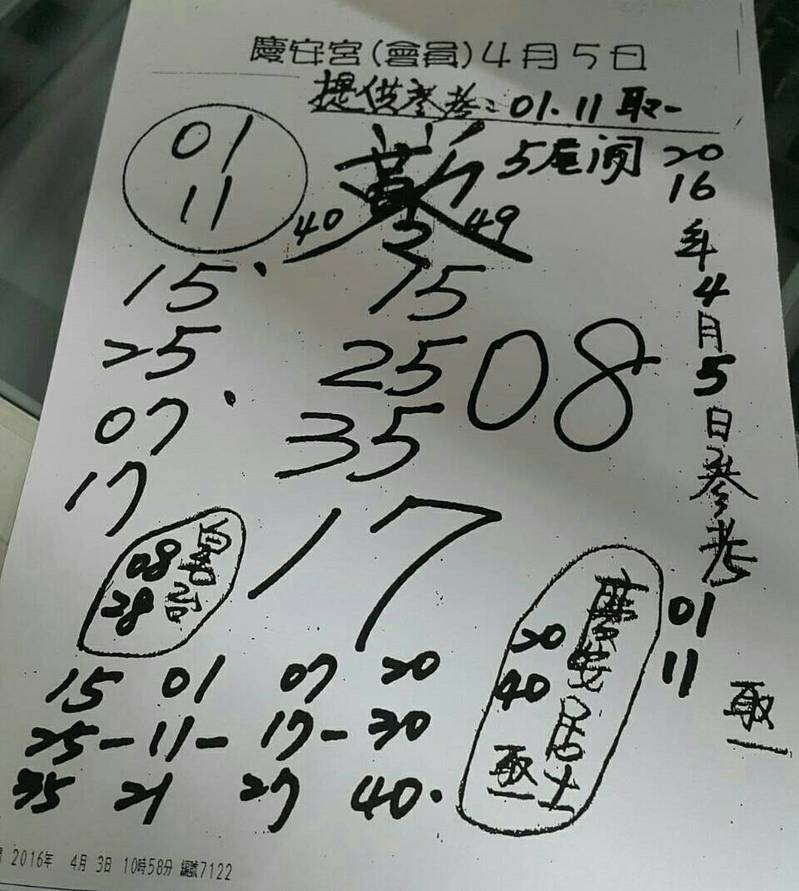 慶安宮(會員)4月5日
提供參考:01.11取一
01
11
40 2 49
5尾闯
2016年4月5日參考
01
11
取一
15、 15
25 25
07、 35
17
08
17
08
28
慶安居士
20
40
取一
15 01 07 20
25-11-17-30
35 21 27 40.
2016年 4月 3日 10時58分 編號7122